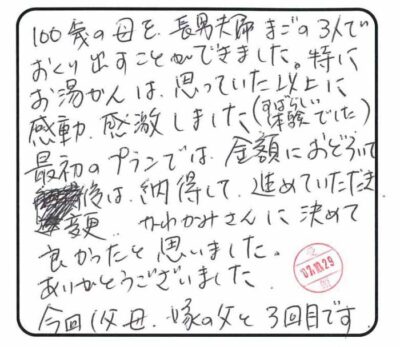 100歳の母を、長男夫婦 まごの3人で
おくり出すことができました。特に
お湯かんは、思っていた以上に
感動、感激しました(すばらしい体験でした)
最初のプランでは、金額におどろいて
後は、納得して、進めていただき
かわかみさんに決めて
良かったと思いました。
ありがとうございました。
今回、父母、嫁の父と3回目です